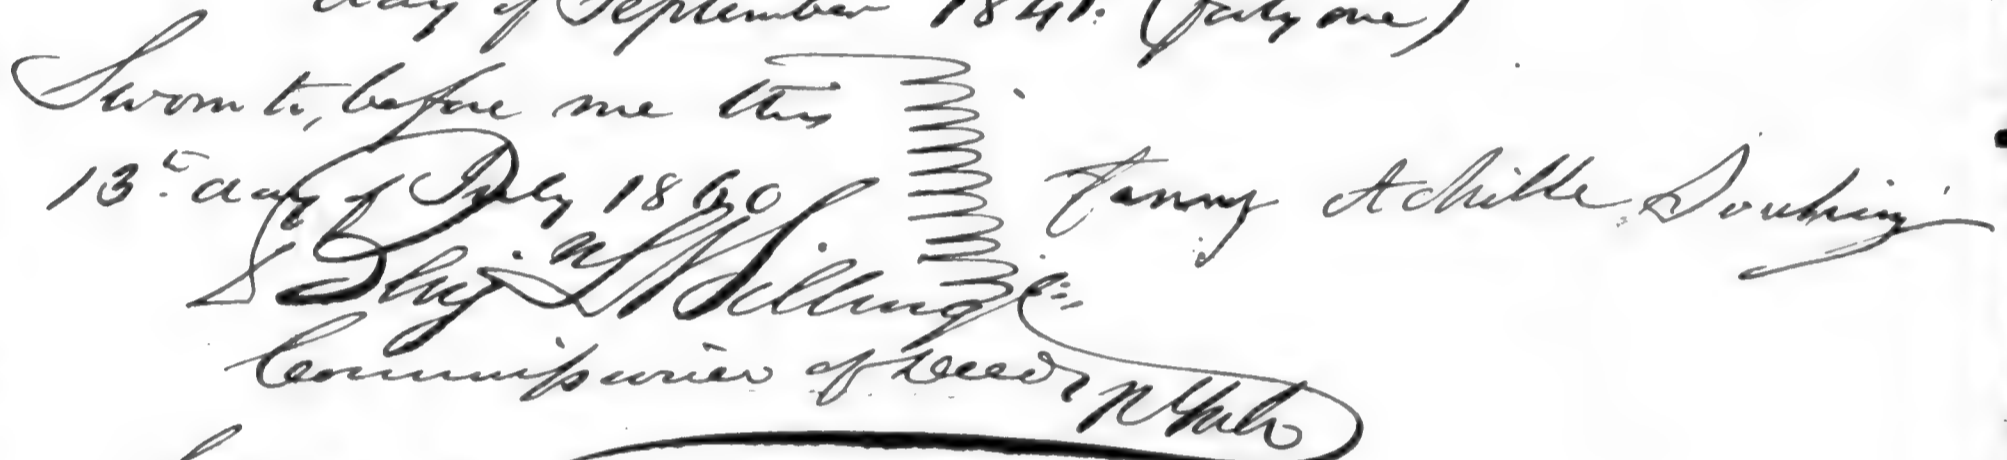 day of September 1841. (forty one)
Sworn to, before me this
13th day of July 1860
Fanny Achille
Billing
Commissioner of Deeds